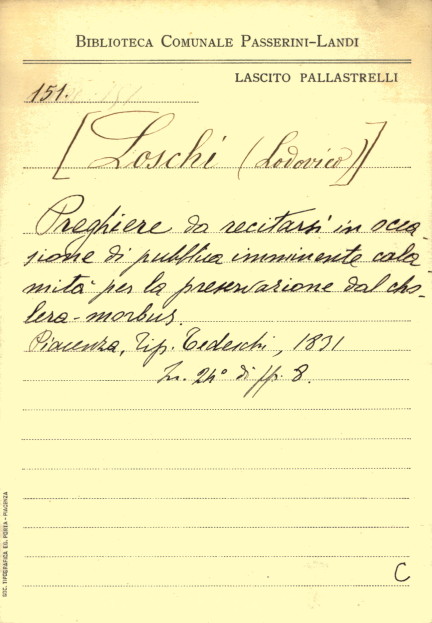 BIBLIOTECA COMUNALE PASSERINI-LANDI
LASCITO PALLASTRELLI
151.
[Loschi (Lodovico)]
Preghiere da recitarsi in occa-
sione di pubblica imminente cala-
mità per la preservazione dal cho-
lera-morbus.
Piacenza, Tip. Tedeschi, 1831
In. 24° di pp. 8.
SOC. TIPOGRAFICA ED. PORTA - PIACENZA
C